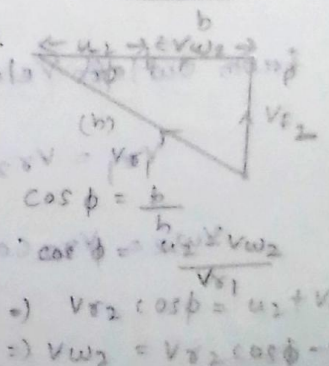 b
u2 Vw2
(h) Vr1 Vr2
cos φ = b/h
cos φ = u2 + Vw2 / Vr1
=) Vr2 cosφ = u2 + V
=) Vw2 = Vr2 cosφ -